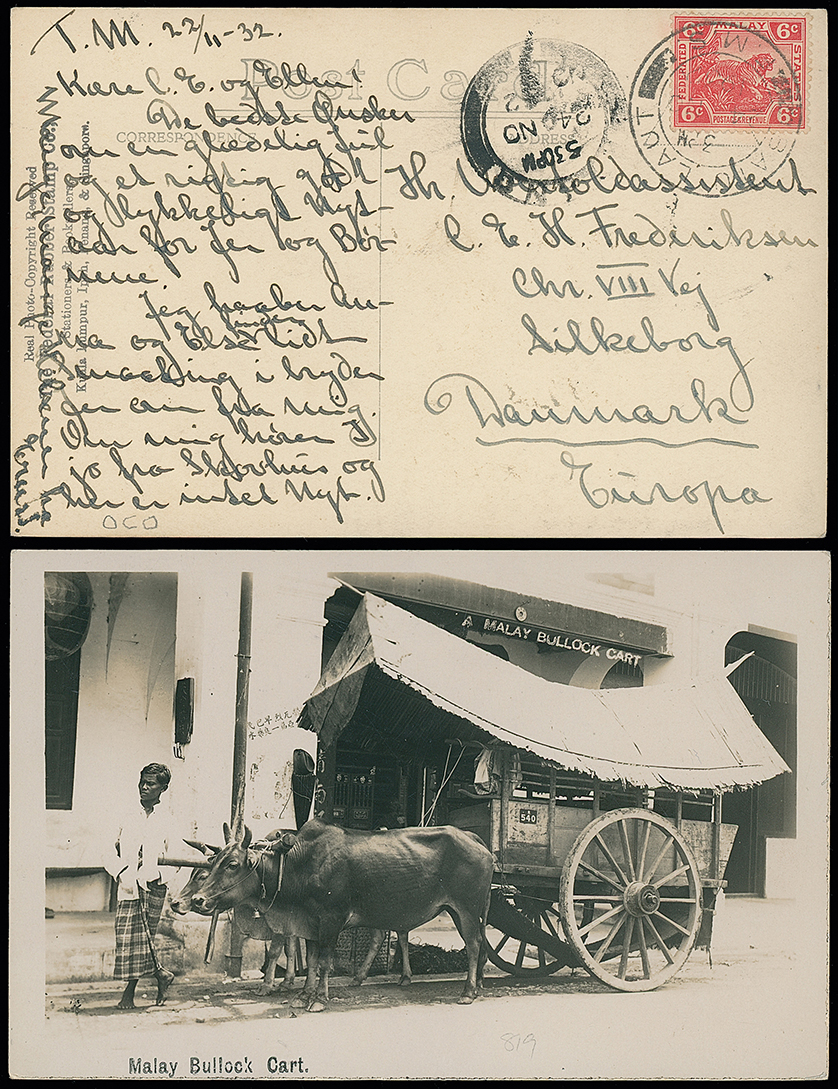 T.M. 22/11-32.
Post Card
CORRESPONDENCE
ADDRESS
Kære C. E. og Ellen!
De bedste Ønsker
om en glædelig Jul
og et rigtig godt
og lykkeligt Nyt-
aar for Jer og Bør-
nene.
Jeg haaber An-
na og Else
Smaating i bryder
Jer om fra mig.
Om mig hører I
jo fra Skovhus og
her er intet Nyt.
Real Photo-Copyright Reserved
The Federal Rubber Stamp Co.
Stationers & Booksellers
Kuala Lumpur, Ipoh, Penang, & Singapore.
6c MALAY 6c
FEDERATED
STATES
6c 6c
POSTAGE & REVENUE
5 30 PM
24 NO
Hr Toldassistent
C. E. H. Frederiksen
Chr. VIII Vej
Silkeborg
Danmark
Europa
OCO
A MALAY BULLOCK CART
540
819
Malay Bullock Cart.